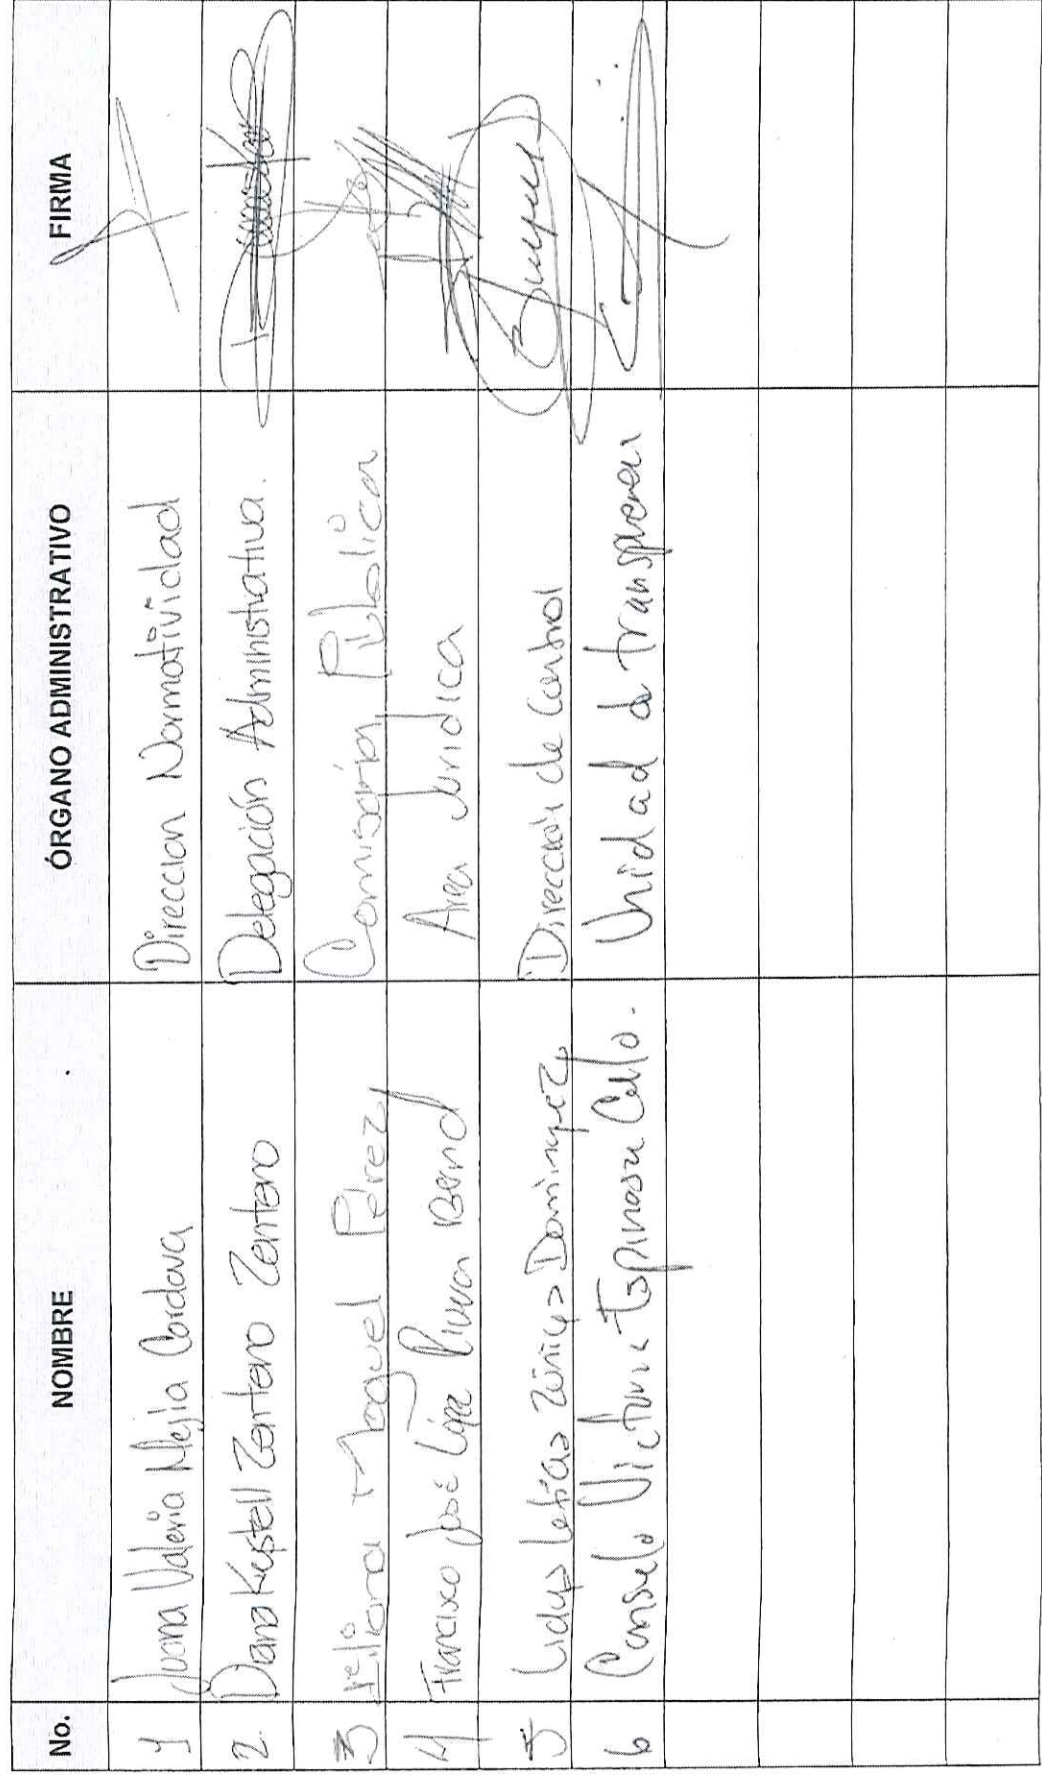 No. NOMBRE ÓRGANO ADMINISTRATIVO FIRMA
1 Juana Valeria Mejía Cordova Direccion Normatividad
2. Diana Krystell Zenteno Zenteno Delegación Administrativa.
3 Liliana Moguel Pérez Comisaría Pública
4 Francisco José López Rivera Área Jurídica
5 Leticia Zúñiga Domínguez Dirección de Control
6 Consuelo Victoria Espinosa Calvo. Unidad de transparen